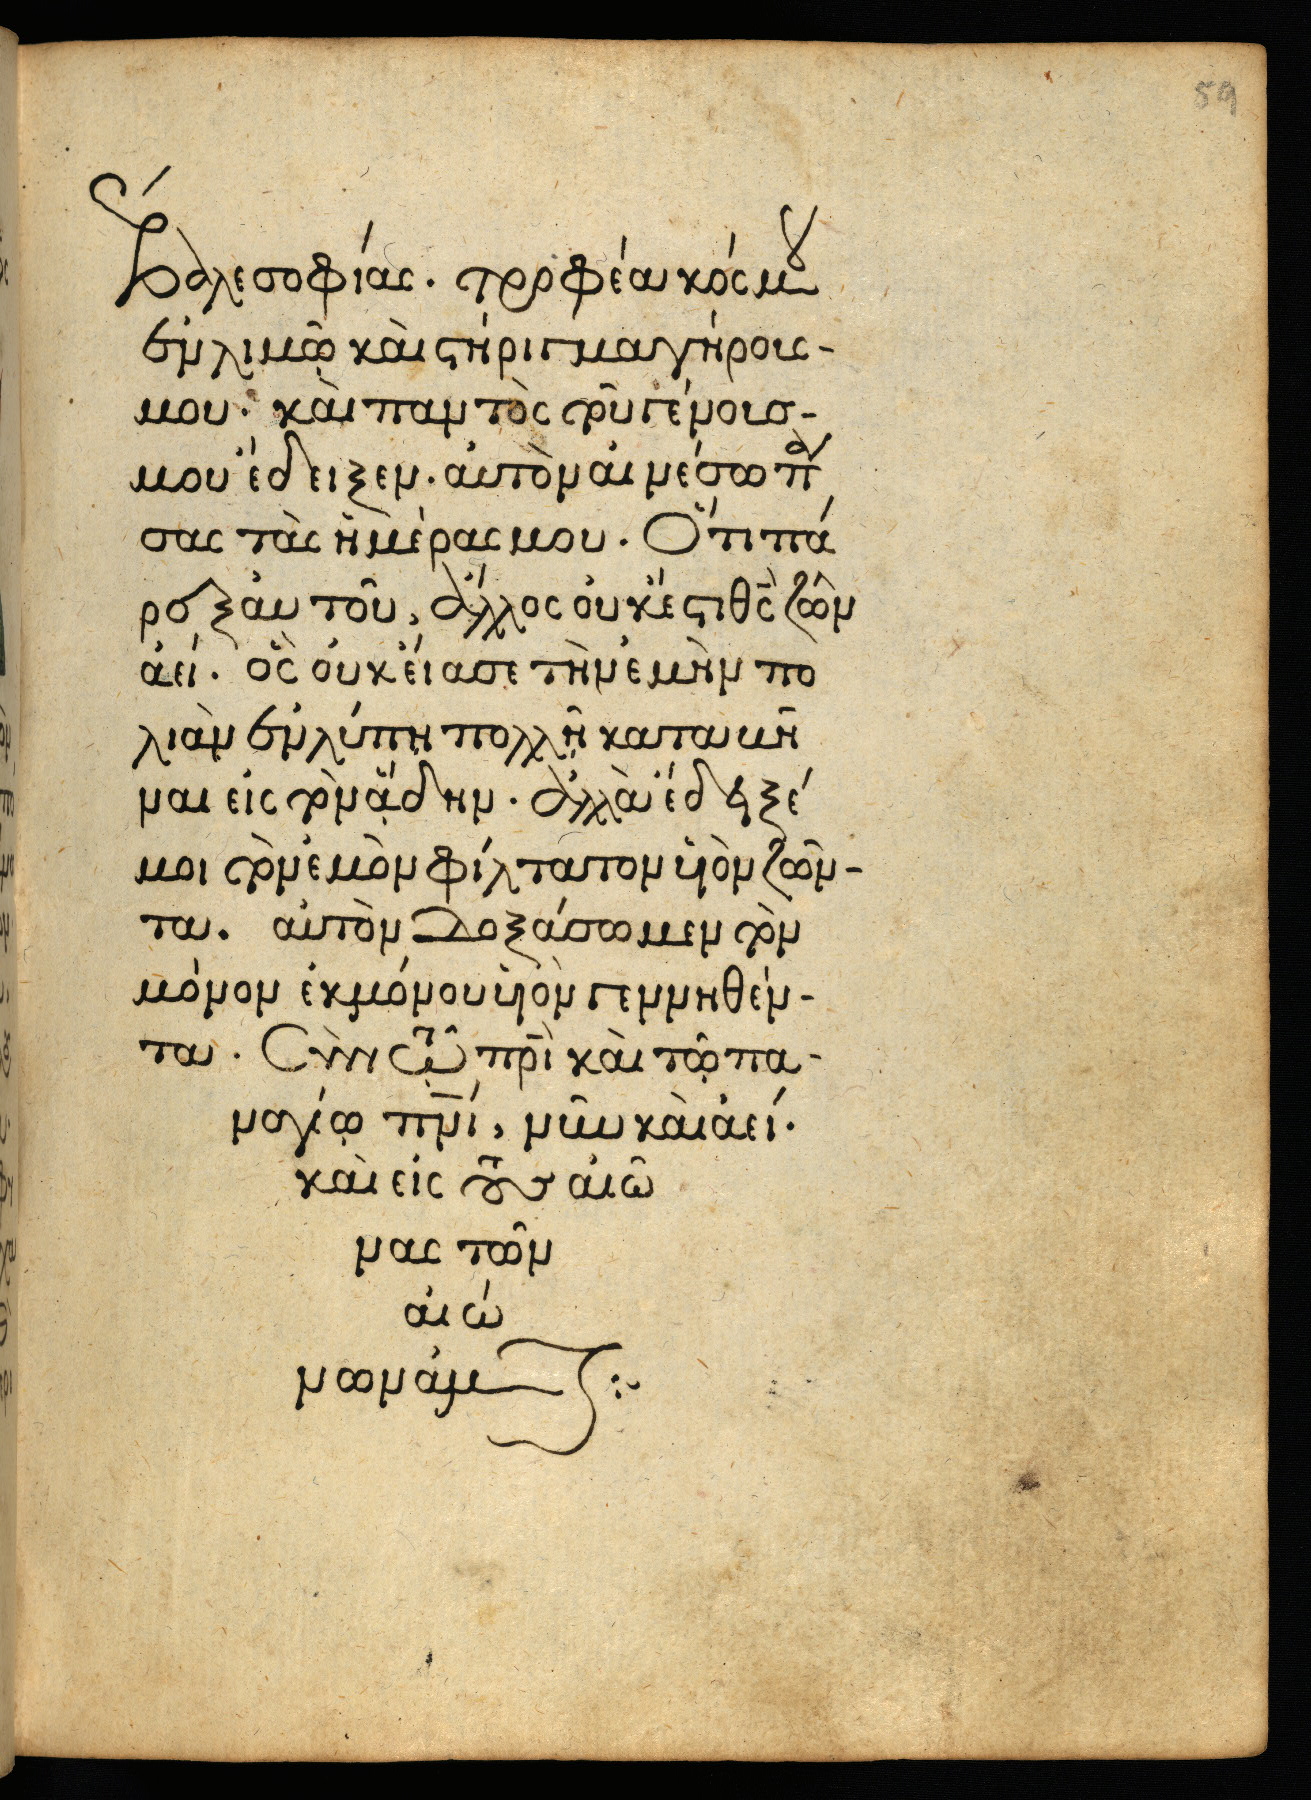 59
σοφίας. τροφέα κόσμου
ἐν λιμῷ καὶ στήριγμα γήρους-
μου. καὶ παντὸς τοῦ γένους-
μου ἔδειξεν. αὐτὸν αἰνέσω πά
σας τὰς ἡμέρας μου. Ὅτι πά
ρεξ αὐτοῦ, ἄλλος οὐκ ἔστι θ̅ς ζῶν
ἀεί. ὃς οὐκ εἴασε τὴν ἐμὴν πο
λιὰν ἐν λύπῃ πολλῇ καταβῆ
ναι εἰς τὸν ᾅδην. ἀλλὰ ἔδειξέ
μοι τὸν ἐμὸν φίλτατον υἱὸν ζῶν-
τα. αὐτὸν δοξάσωμεν τὸν
μόνον ἐκ μόνου υἱὸν γεννηθέν-
τα. Σὺν τῷ πρ̅ὶ καὶ τῷ πα-
ναγίῳ πν̅ί, νῦν καὶ ἀεί.
καὶ εἰς τοὺς αἰῶ
νας τῶν
αἰώ
νων ἀμήν :~